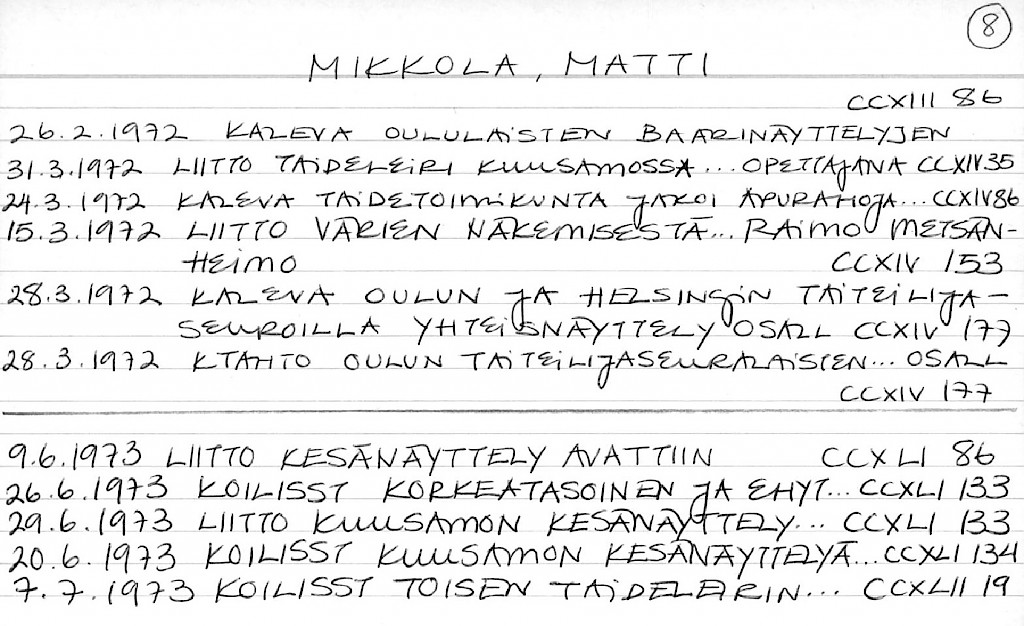 8
MIKKOLA, MATTI
CCXIII 86
26.2.1972 KALEVA OULULAISTEN BAARINÄYTTELYJEN
31.3.1972 LIITTO TAIDELEIRI KUUSAMOSSA... OPETTAJANA CCXIV 35
24.3.1972 KALEVA TAIDETOIMIKUNTA JAKOI APURAHOJA... CCXIV 86
15.3.1972 LIITTO VÄRIEN NÄKEMISESTÄ... RAIMO METSÄN-
HEIMO CCXIV 153
28.3.1972 KALEVA OULUN JA HELSINGIN TAITEILIJA-
SEUROILLA YHTEISNÄYTTELY OSALL CCXIV 177
28.3.1972 KTAHTO OULUN TAITEILIJASEURALAISTEN... OSALL
CCXIV 177
9.6.1973 LIITTO KESÄNÄYTTELY AVATTIIN CCXLI 86
26.6.1973 KOILISST KORKEATASOINEN JA EHYT... CCXLI 133
29.6.1973 LIITTO KUUSAMON KESÄNÄYTTELY... CCXLI 133
20.6.1973 KOILISST KUUSAMON KESÄNÄYTTELYÄ... CCXLI 134
7.7.1973 KOILISST TOISEN TAIDELEIRIN... CCXLII 19